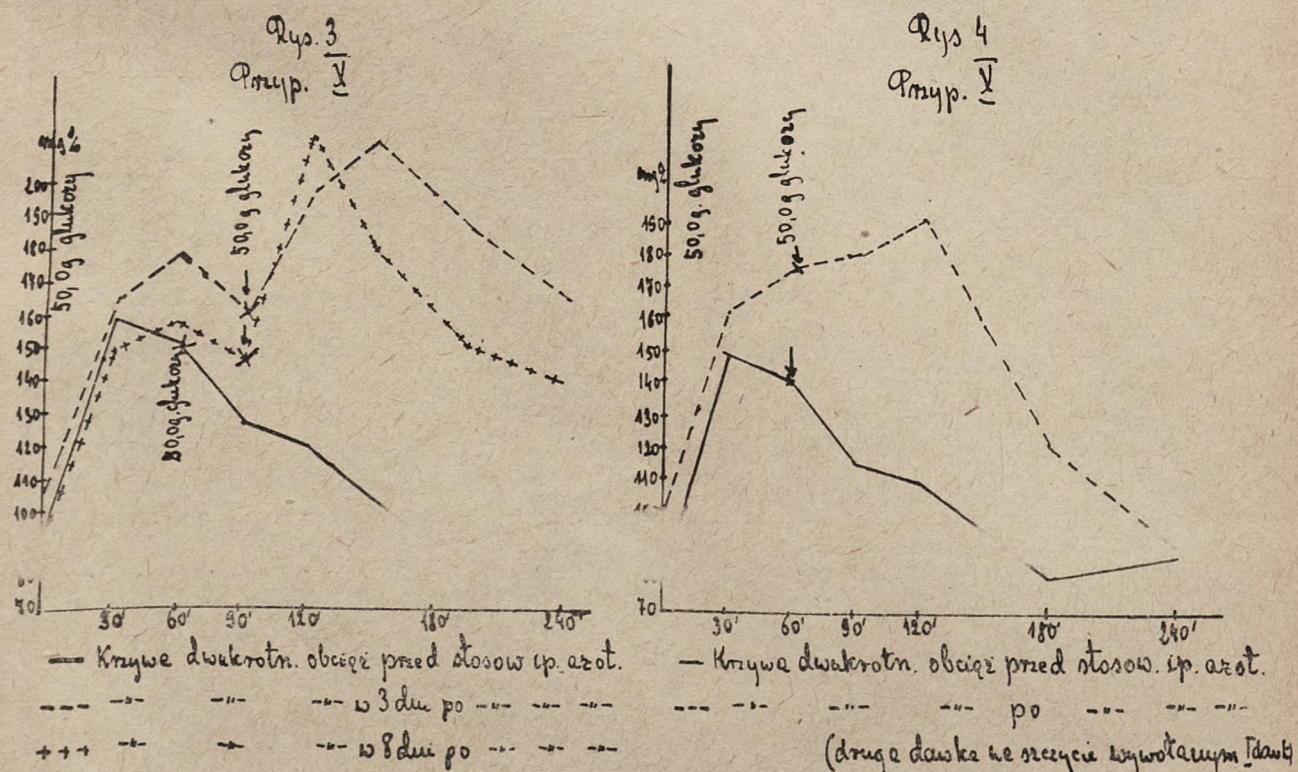 Rys. 3
Przyp. V
mg%
200
190
180
170
160
150
140
130
120
110
100
70
50,0g glukozy
50,0g glukozy
30' 60' 90' 120' 180' 240'
— Krzywa dwukrotn. obciąż przed stosow ip. azot.
--- -"- -"- -"- w 3 dni po -"- -"- -"-
+++ -"- -"- -"- w 8 dni po -"- -"- -"-
Rys 4
Przyp. V
190
180
170
160
150
140
130
120
110
70
50,0g. glukozy
50,0g glukozy
30' 60' 90' 120' 180' 240'
— Krzywa dwukrotn. obciąż przed stosow. ip. azot.
--- -"- -"- -"- po -"- -"- -"-
(druga dawka na szczycie wywołanym I dawk)